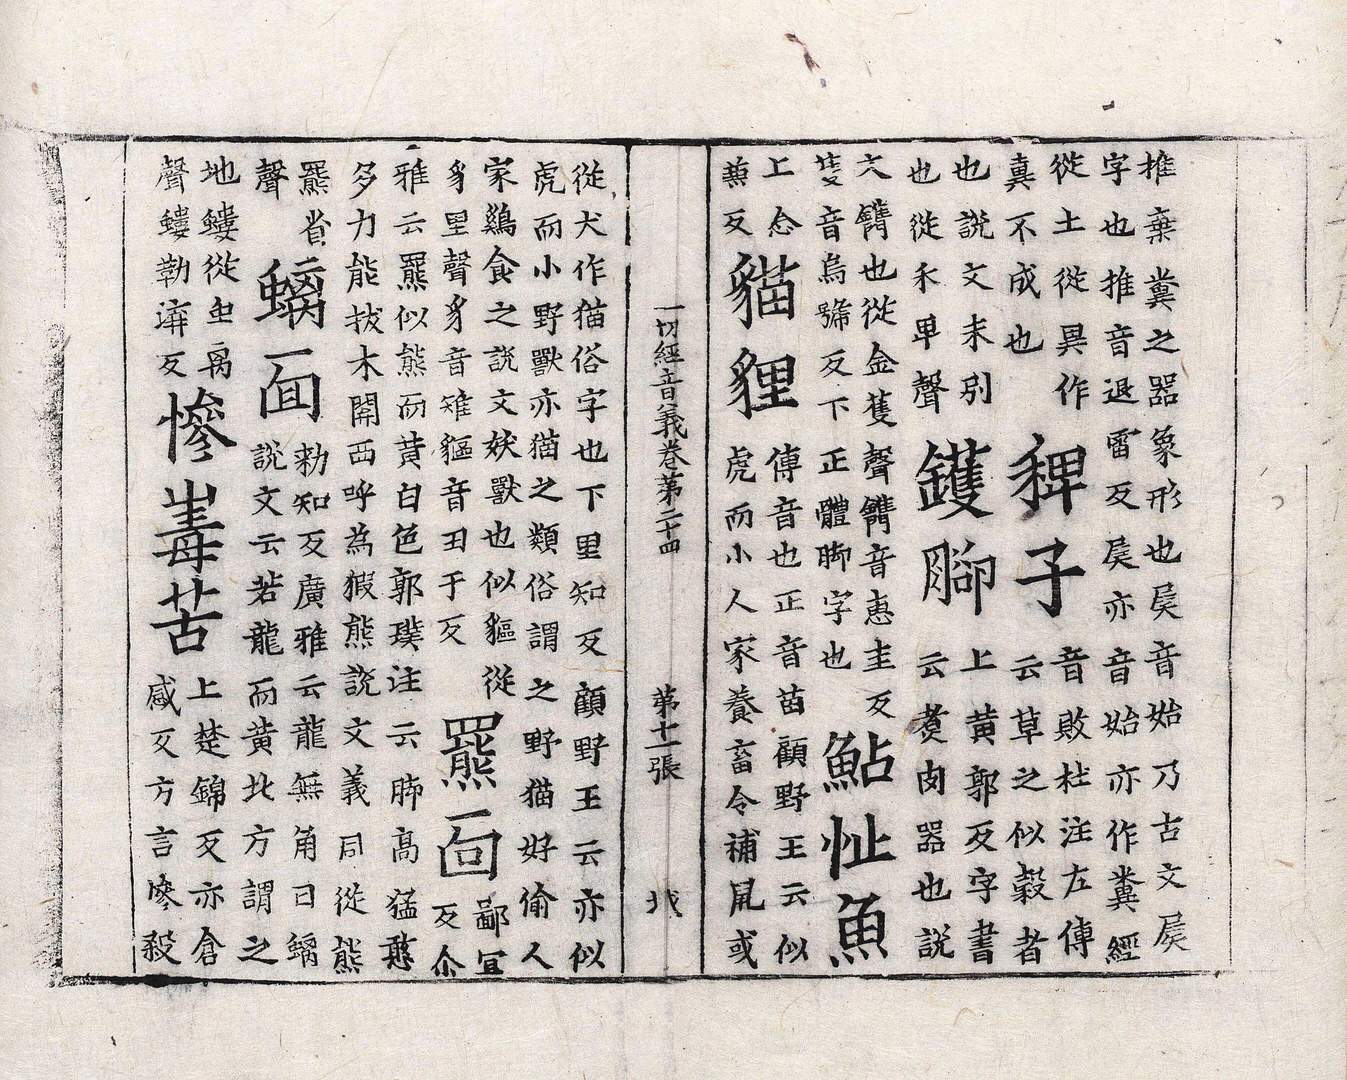 推棄糞之器象形也𡱁音始乃古文𡱁
字也推音退雷反𡱁亦音始亦作糞經
從土從異作
真不成也
稗子
音敗杜注左傳
云草之似穀者
也說文未別
也從禾卑聲
鑊腳
上黃郭反字書
云煑肉器也說
文鑴也從金蒦聲鑴音惠圭反
蒦音烏虢反下正體脚字也
鮎魚
上念
蕪反
貓貍
傳音也正音苗顧野王云似
虎而小人家養畜令補鼠或
一切經音義卷第二十四 第十一張
從犬作猫俗字也下里知反顧野王云亦似
虎而小野獸亦猫之類俗謂之野猫好偷人
家鷄食之說文妖獸也似貙從
豸里聲豸音雉貙音丑于反
羆面
鄙宜
反尒
雅云羆似熊而黃白色郭璞注云脚高猛憨
多力能拔木關西呼為猳熊說文義同從熊
羆省
聲
螭面
勑知反廣雅云龍無角曰螭
說文云若龍而黃北方謂之
地螻從虫离
聲螻勒溝反
慘毒苦
上楚錦反亦倉
感反方言慘殺